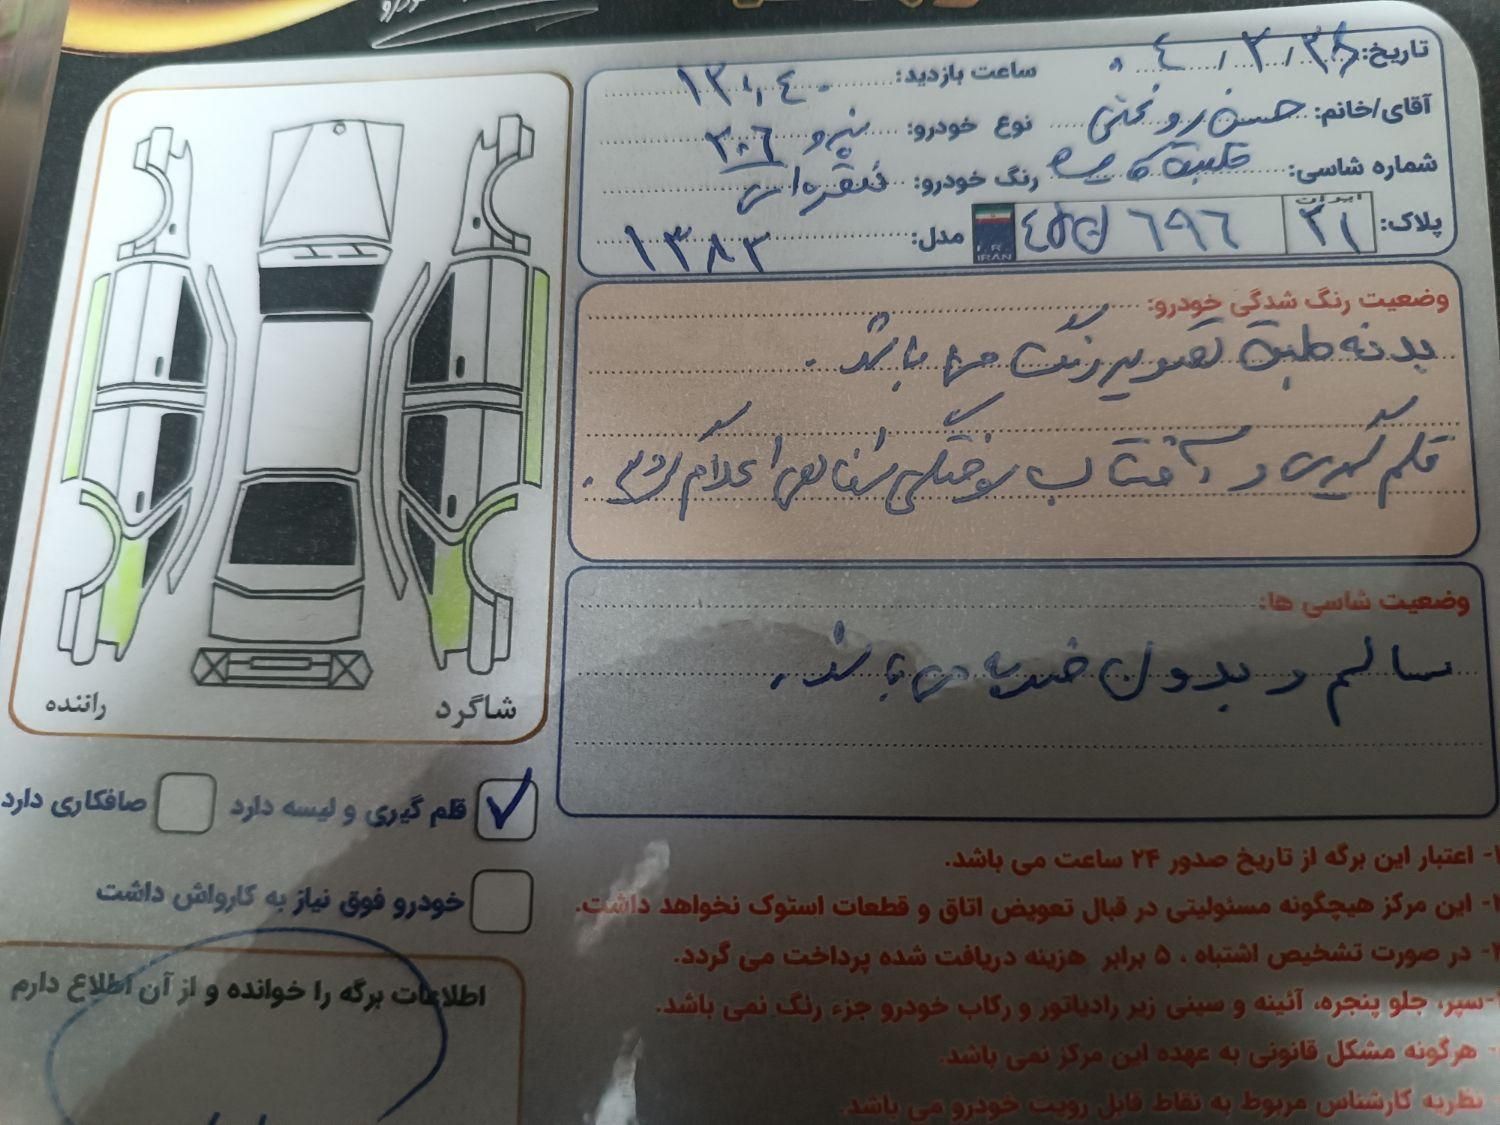 تاریخ: ۰۴/۳/۳۸
ساعت بازدید: ۱۳:۴۰
آقای/خانم: حسن
نوع خودرو: پژو ۲۰۶
شماره شاسی:
رنگ خودرو: نقره‌ای
پلاک: ایران ۲۱ ۶۹۶ ۴۵
I.R. IRAN
مدل: ۱۳۸۳
وضعیت رنگ شدگی خودرو:
بدنه طبق تصویر رنگ می باشد.
قلم گیری و آفتاب سوختگی شفاهی اعلام گردید.
وضعیت شاسی ها:
سالم و بدون ضربه می باشد.
راننده
شاگرد
قلم گیری و لیسه دارد
صافکاری دارد
خودرو فوق نیاز به کارواش داشت
اطلاعات برگه را خوانده و از آن اطلاع دارم
۱- اعتبار این برگه از تاریخ صدور ۲۴ ساعت می باشد.
۲- این مرکز هیچگونه مسئولیتی در قبال تعویض اتاق و قطعات استوک نخواهد داشت.
۳- در صورت تشخیص اشتباه ، ۵ برابر هزینه دریافت شده پرداخت می گردد.
-سپر، جلو پنجره، آئینه و سینی زیر رادیاتور و رکاب خودرو جزء رنگ نمی باشد.
- هرگونه مشکل قانونی به عهده این مرکز نمی باشد.
نظریه کارشناس مربوط به نقاط قابل رویت خودرو می باشد.